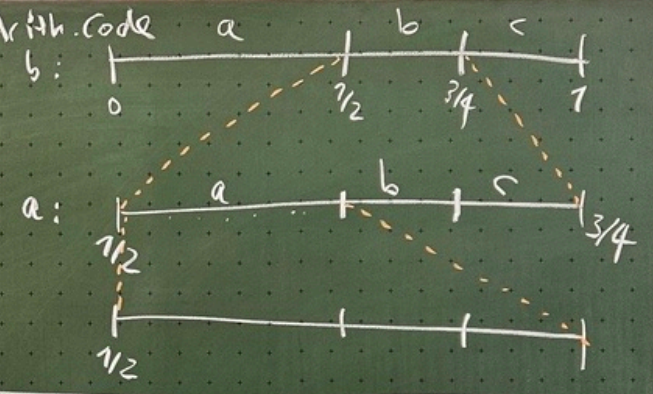 Arith.Code
a b c
b:
0 1/2 3/4 1
a b c
a:
1/2 3/4
1/2